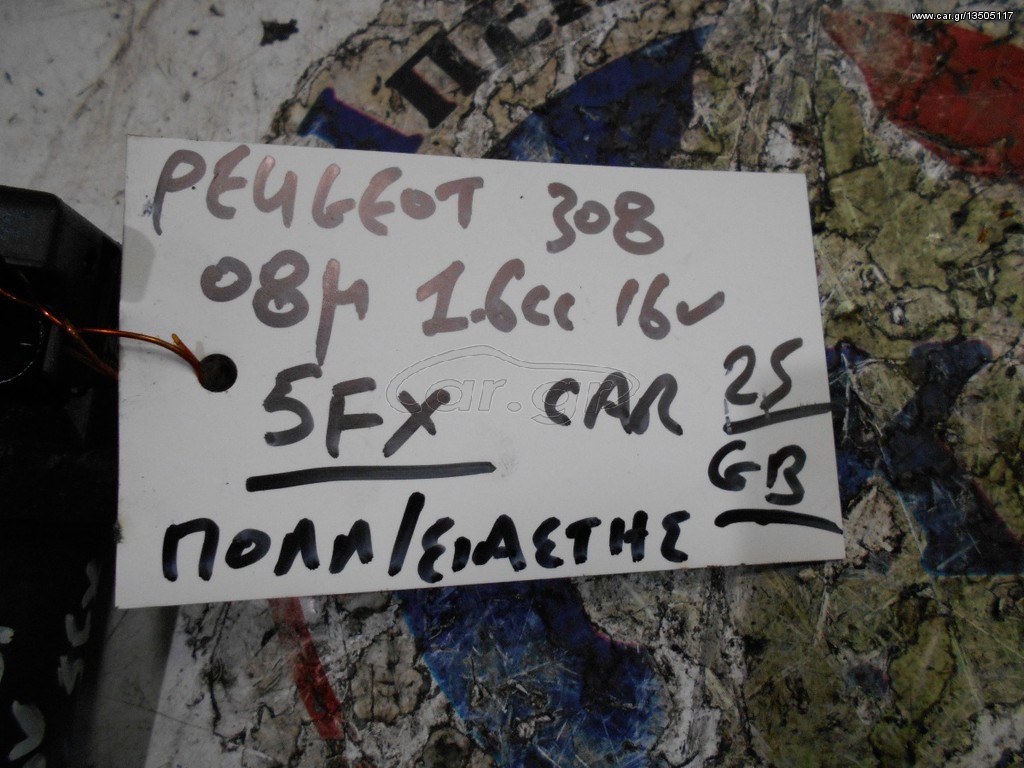 www.car.gr/13505117
ΠΕΚ
PEUGEOT 308
08μ 1.6cc 16v
5FX CAR 25
GB
car.gr
ΠΟΛΛ/ΣΙΑΣΤΗΣ